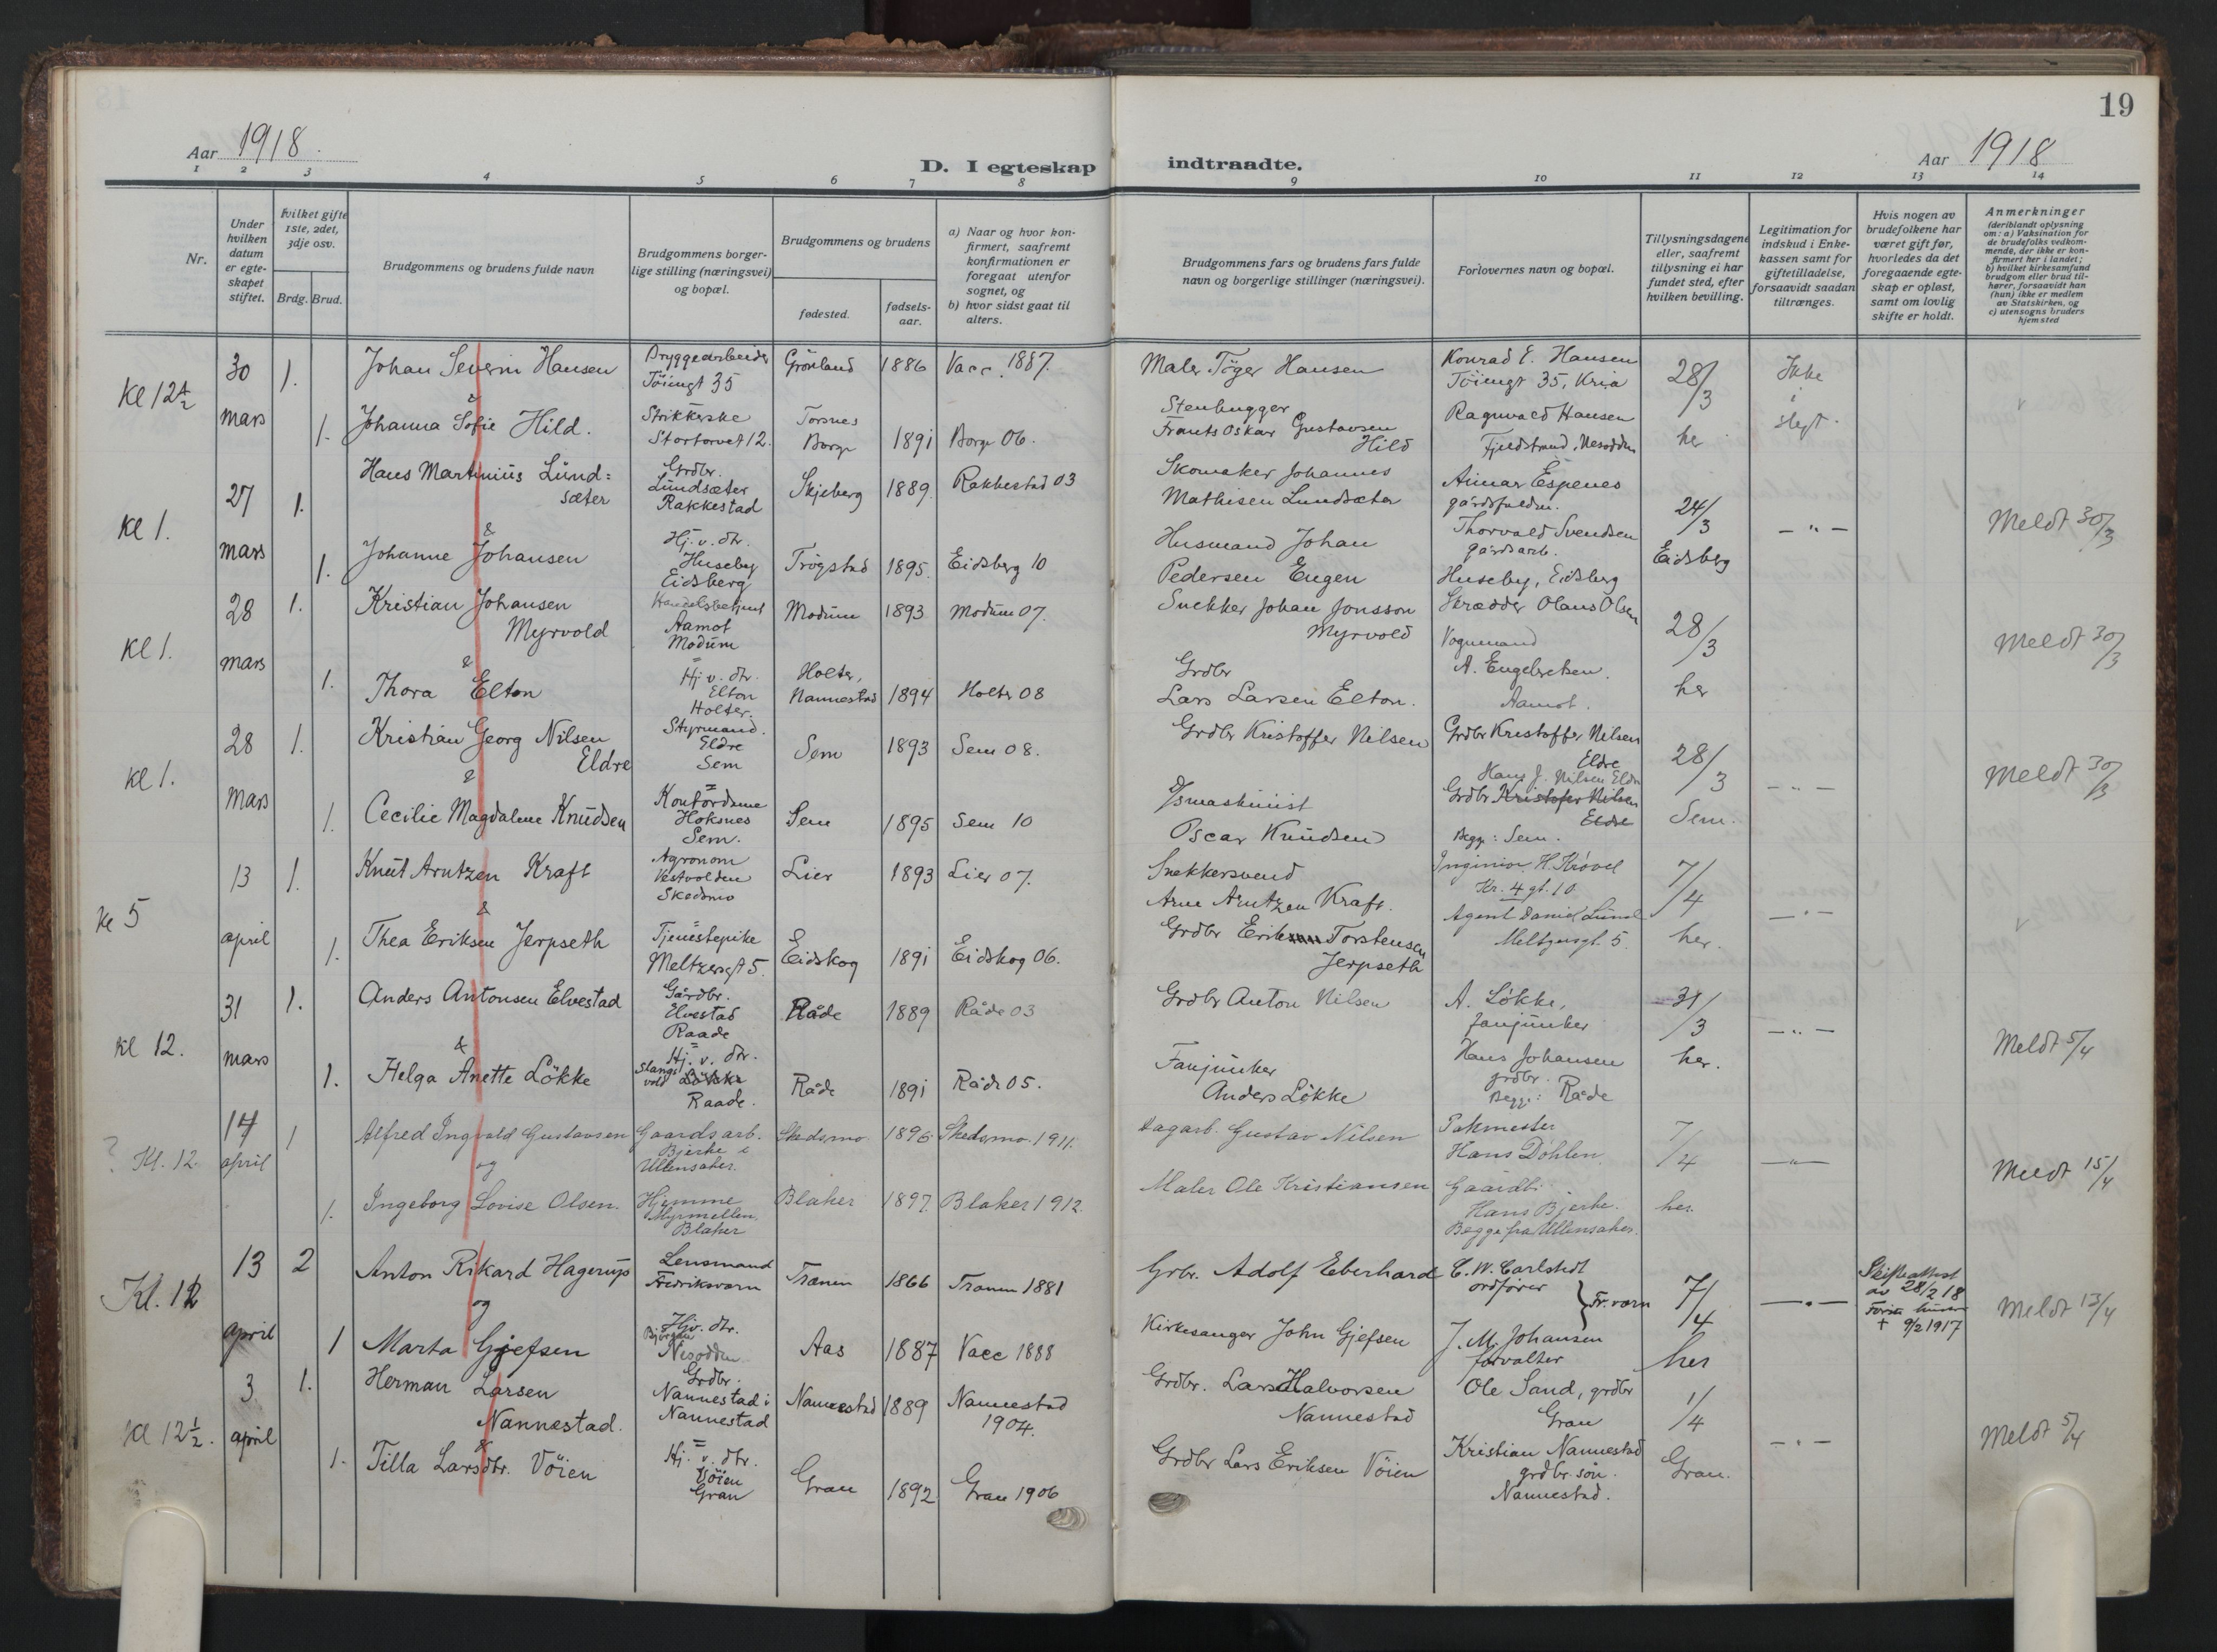 19
Aar 1918.
D. I egteskap indtraadte.
Aar 1918
1 2 3 4 5 6 7 8 9 10 11 12 13 14
Nr.
Under hvilken datum er egteskapet stiftet.
Hvilket gifte 1ste, 2det, 3dje osv.
Brdg. Brud.
Brudgommens og brudens fulde navn
Brudgommens borgerlige stilling (næringsvei) og bopæl.
Brudgommens og brudens
fødested.
fødselsaar.
a) Naar og hvor konfirmert, saafremt konfirmationen er foregaat utenfor sognet, og
b) hvor sidst gaat til alters.
Brudgommens fars og brudens fars fulde navn og borgerlige stillinger (næringsvei).
Forlovernes navn og bopæl.
Tillysningsdagene eller, saafremt tillysning ei har fundet sted, efter hvilken bevilling.
Legitimation for indskud i Enkekassen samt for giftetilladelse, forsaavidt saadan tiltrænges.
Hvis nogen av brudefolkene har været gift før, hvorledes da det foregaaende egteskap er opløst, samt om lovlig skifte er holdt.
Anmerkninger
(deriblandt oplysning om: a) Vaksination for de brudefolks vedkommende, der ikke er konfirmert her i landet; b) hvilket kirkesamfund brudgom eller brud tilhører, forsaavidt han (hun) ikke er medlem av Statskirken, og c) utensogns bruders hjemsted
Kl 12 1/2
30 mars 1. Johan Severin Hansen Bryggearbeider Töiengt 35 Grönland 1886 Vacc. 1887. Maler Töger Hansen Konrad E. Hansen Töiengt 35, Kr.ia 28/3 Ikke i slegt.
&
1. Johanna Sofie Hild. Strikkerske Stortorvet 12. Torsnes Borge 1891 Borge 06. Stenhugger Frants Oskar Gustavsen Hild Ragnvald Hansen Fjeldstrand, Nesodden her
Kl 1.
27 mars 1. Hans Martinius Lundsæter Grdbr. Lundsæter Rakkestad Skjeberg 1889. Rakkestad 03 Skomaker Johannes Mathisen Lundsæter Aimar Espenes gårdsfuldm. 24/3 — " — Meldt 30/3
&
1. Johanne Johansen Hj. v. dtr. Huseby Eidsberg Trögstad 1895. Eidsberg 10 Husmand Johan Pedersen Eugen Thorvald Svendsen gårdsarb. Huseby, Eidsberg Eidsberg
Kl 1.
28 mars 1. Kristian Johansen Myrvold Handelsbetjent Aamot Modum Modum 1893 Modum 07. Snekker Johan Jonsson Myrvold Skrædder Olaus Olsen 28/3 Meldt 30/3
&
1. Thora Elton Hj. v. dtr. Elton Holter. Holter, Nannestad 1894 Holter 08 Grdbr Lars Larsen Elton. Vognmand A. Engebretsen. Aamot. her
Kl 1.
28 Mars 1. Kristian Georg Nilsen Eldre Styrmand. Eldre Sem Sem 1893 Sem 08. Grdbr Kristoffer Nilsen Grdbr Kristoffer Nilsen Eldre 28/3 — " — Meldt 30/3
&
1. Cecilie Magdalene Knudsen Kontordame Hoksnes Sem. Sem 1895 Sem 10 D/Smaskinist Oscar Knudsen Hans J. Nilsen Eldre Grdbr Kristofer Nilsen Eldre Begge: Sem. Sem.
Kl 5
13 april 1. Knut Arntzen Kraft Agronom Vestvolden Skedsmo Lier 1893 Lier 07. Snekkersvend Arne Arntzen Kraft. Inginiør H. Krövel Kr. 4 gt. 10. 7/4 — " —
&
1. Thea Eriksen Jerpseth Tjenestepike Meltzersgt 5. Eidskog 1891 Eidskog 06. Grdbr Erik Torstensen Jerpseth Agent Daniel Lund Meltzersgt. 5. her.
Kl 12.
31 mars 1. Anders Antonsen Elvestad Gårdbr. Elvestad Raade Råde 1889 Råde 03 Grdbr Anton Nilsen A. Lökke, fanjunker 31/3 — " — Meldt 5/4
&
1. Helga Anette Lökke Hj. v. dtr. Slangsvold Lökke Raade. Råde 1891 Råde 05. Fanjunker Anders Lökke Hans Johansen grdbr. Begge: Råde her.
? Kl. 12.
14 april 1 Alfred Ingvald Gustavsen Gaardsarb. Bjerke i Ullensaker. Skedsmo 1896. Skedsmo 1911. Dagarb. Gustav Nilsen Pakmester Hans Döhlen. 7/4 — " — Meldt 15/4
og
1. Ingeborg Lovise Olsen. Hjemme Myrmellen, Blaker Blaker 1897. Blaker 1912. Maler Ole Kristiansen Gaardb. Hans Bjerke. Begge fra Ullensaker. her.
Kl. 12
13 april 2 Anton Rikard Hagerup Lensmand Fredriksvarn Tranen 1866 Tranen 1881 Grbr. Adolf Eberhard C. W. Carlstedt ordförer } Fr.varn 7/4 — " — Skifteattest av 28/2 18 + 9/2 1917 Meldt 13/4
og
1 Marta Gjefsen Hjv. dtr. Nesodden Aas 1887 Vacc 1888 Kirkesanger John Gjefsen J. M. Johansen forvalter her
Kl 12 1/2.
3 april 1. Herman Larsen Nannestad. Grdbr. Nannestad i Nannestad Nannestad 1889 Nannestad 1904. Grdbr. Lars Halvorsen Nannestad Ole Sand, grdbr Gran 1/4 — " — Meldt 5/4
&
1. Tilla Larsdtr. Vöien Hj. v. dtr. Vöien Gran Gran 1892 Gran 1906 Grdbr Lars Eriksen Vöien Kristian Nannestad grdbr.sön. Nannestad. Gran.